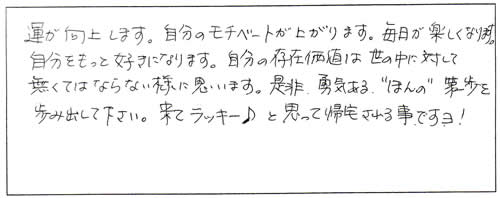 運が向上します。自分のモチベートが上がります。毎日が楽しくなります。
自分をもっと好きになります。自分の存在価値は世の中に対して
無くてはならない様に思います。是非、勇気ある、"ほんの"第一歩を
歩み出して下さい。来てラッキー♪と思って帰宅される事ですヨ!